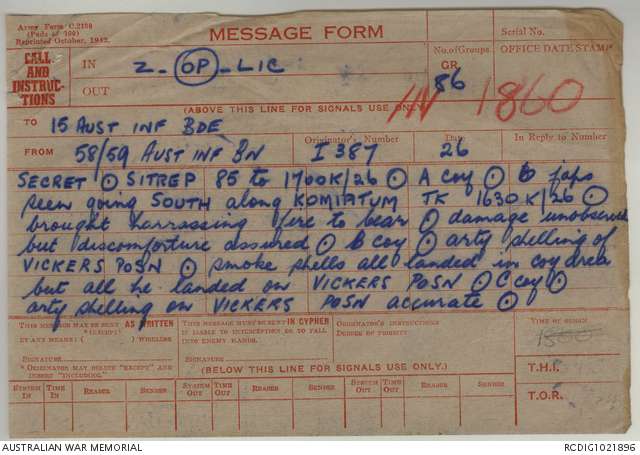 Army Form C.2130
(Pads of 100)
Reprinted October, 1942.
MESSAGE FORM
Serial No.
CALL
AND
INSTRUC-
TIONS
IN
Z - OP - LIC
No. of Groups
GR.
86
OFFICE DATE STAMP
OUT
(ABOVE THIS LINE FOR SIGNALS USE ONLY)
IN 1860
TO 15 AUST INF BDE
Originator's Number Date In Reply to Number
FROM 58/59 AUST INF BN I 387 26
SECRET ⊙ SITREP 85 to 1700K/26 ⊙ A coy ⊙ 6 japs
seen going SOUTH along KOMIATUM TK 1630K/26 ⊙
brought harrassing fire to bear ⊙ damage unobserved
but discomforture assured ⊙ B coy ⊙ arty shelling of
VICKERS POSN ⊙ smoke shells all landed in coy area
but all he landed on VICKERS POSN ⊙ C coy ⊙
arty shelling on VICKERS POSN accurate ⊙
THIS MESSAGE MAY BE SENT AS WRITTEN
*(EXCEPT)
BY ANY MEANS ( ) WIRELESS
SIGNATURE
* ORIGINATOR MAY DELETE "EXCEPT" AND
INSERT "INCLUDING."
THIS MESSAGE MUST BE SENT IN CYPHER
IF LIABLE TO INTERCEPTION OR TO FALL
INTO ENEMY HANDS.
SIGNATURE
ORIGINATOR'S INSTRUCTIONS
DEGREE OF PRIORITY
TIME OF ORIGIN
T.H.I.
T.O.R.
(BELOW THIS LINE FOR SIGNALS USE ONLY.)
SYSTEM IN TIME IN READER SENDER SYSTEM OUT TIME OUT READER SENDER SYSTEM OUT TIME OUT READER SENDER
AUSTRALIAN WAR MEMORIAL
RCDIG1021896